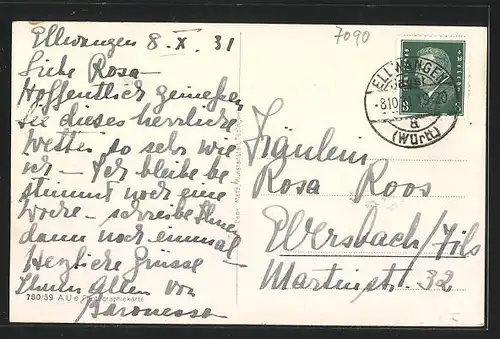 Ellwangen 8. X. 31
Liebe Rosa –
Hoffentlich genießen
Sie dieses herrliche
Wetter so sehr wie
ich – Ich bleibe be
stimmt noch eine
Woche – schreibe Ihnen
dann noch einmal –
Herzliche Grüsse
Ihnen Allen von
Baronesse
760/59 A
Photographiekarte
7090
ELLWANGEN
8.10.
19-20
a
(WÜRTT)
8
Fräulein
Rosa Roos
Ebersbach/Fils
Martinstr. 32